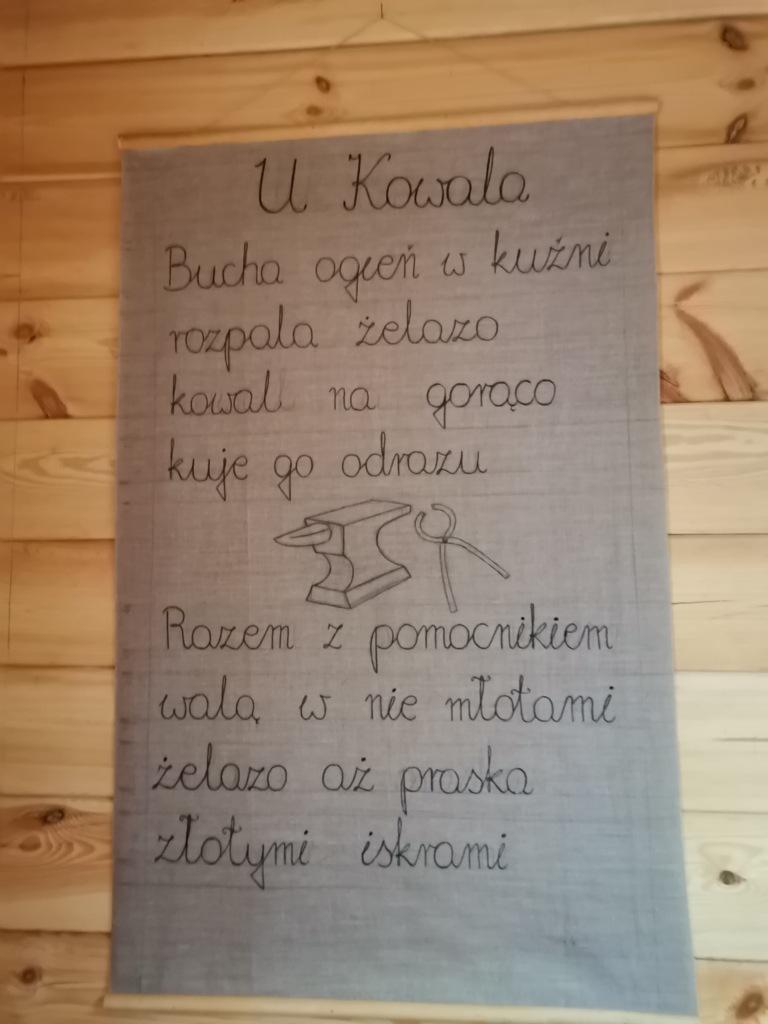 U Kowala
Bucha ogień w kuźni
rozpala żelazo
kowal na gorąco
kuje go odrazu
Razem z pomocnikiem
walą w nie młotami
żelazo aż praska
złotymi iskrami